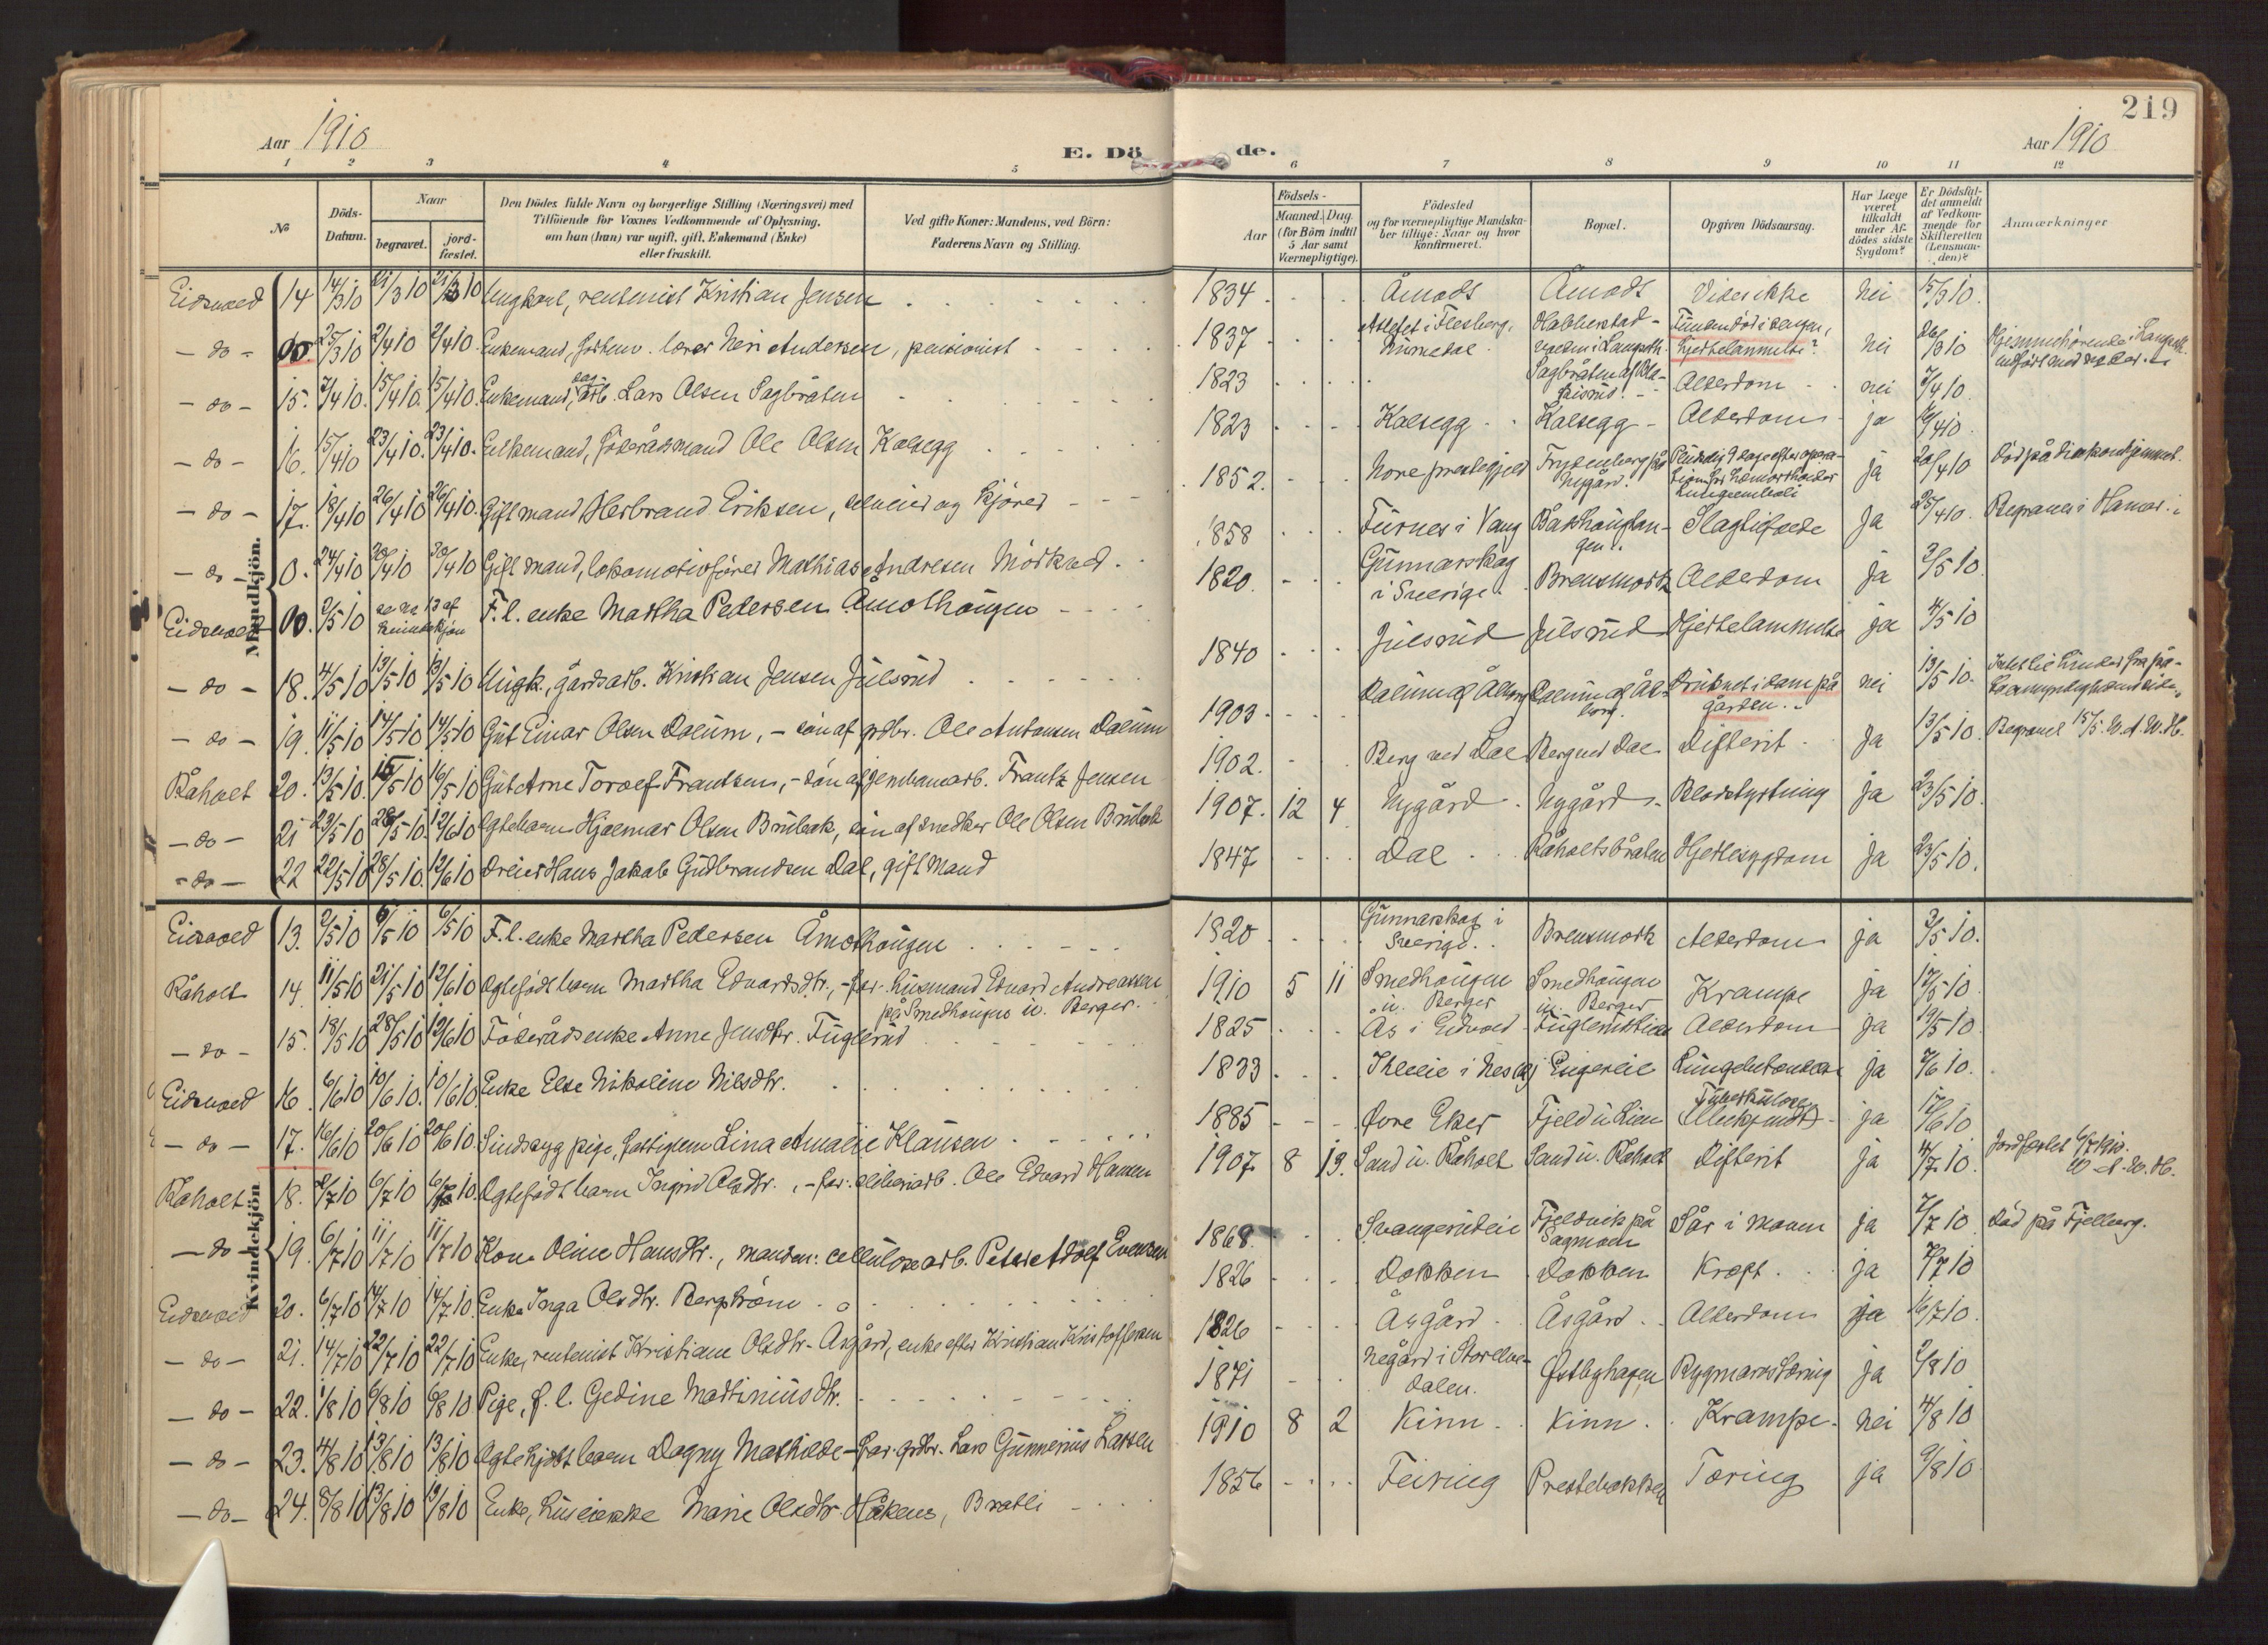 219
Aar 1910
E. Dö
de.
Aar 1910
1 2 3 4 5 6 7 8 9 10 11 12
№
Döds-Datum.
Naar
begravet.
jord-fæstet.
Den Dödes fulde Navn og borgerlige Stilling (Næringsvei) med
Tilföiende for Voxnes Vedkommende af Oplysning,
om han (hun) var ugift, gift, Enkemand (Enke)
eller fraskilt.
Ved gifte Koner: Mandens, ved Börn:
Faderens Navn og Stilling.
Födsels-
Aar
Maaned. Dag.
(for Börn indtil
5 Aar samt
Værnepligtige).
Födested
og for værnepligtige Mandska-
ber tillige: Naar og hvor
konfirmeret.
Bopæl.
Opgiven Dödsaarsag.
Har Læge
været
tilkaldt
under Af-
dödes sidste
Sygdom?
Er Dödsfal-
det anmeldt
af Vedkom-
mende for
Skifteretten
(Lensman-
den)?
Anmærkninger
Mandkjön.
Eidsvold 14 14/3 10 21/3 10 21/3 10 Ungkarl, rentenist Kristian Jensen 1834 Åmodt Åmodt Vides ikke nei 15/3 10.
- do - 00 25/3 10 2/4 10 2/4 10. Enkemand, forhenv. lærer Neri Andersen, pensionist 1837 Flesberg, Numedal Habberstad- i Langseth. Funden död i sengen, hjertelammelse? nei 26/3 10 Hjemmehörende i Langseth.
- do - 15. 7/4 10. 15/4 10. 15/4 10. Enkemand, dag arb. Lars Olsen Sagbråten 1823 Sagbråten af Alderdom nei 7/4 10.
- do - 16. 15/4 10 23/4 10. 23/4 10. Enkemand, föderådsmand Ole Olsen Kalsegg 1823 Kalsegg Kalsegg Alderdom ja 4 10.
- do - 17. 18/4 10 26/4 10 26/4 10. Gift mand Herbrand Eriksen, selveier og kjörer 1852. Nore prestegjeld Frydenberg på Nygård. Pludselig 9 dage efter opera-tion for hæmorrhoider Lungeemboli ja 20/4 10 Död på diakonhjemmet.
- do - 0. 24/4 10 30/4 10 30/4 10 Gift mand, lokomotivförer Mathias Andresen Mörkved. 1858 Furnes i Vang Bakhaugen. Slagtilfælde Ja 25/4 10. Begraves i Hamar.
Eidsvold 00. 2/5 10 se nr 13 af kvindekjön F. l. enke Martha Pedersen Åmothaugen 1820. Gunnarskog i Sverige. Brensmork Alderdom ja 3/5 10.
- do - 18. 4/5 10 13/5 10 13/5 10 Ungk., gårdsarb. Kristian Jensen Julsrud 1840 Julsrud Julsrud Hjertelammelse ja 4/5 10
- do - 19. 11/5 10 14/5 10 14/5 10 Gut Einar Olsen Dalum, - sön af grdbr. Ole Antonsen Dalum 1903. Dalum Dalum Druknet i dam på gården. nei 13/5 10.
Råholt 20. 13/5 10. 15/5 10 16/5 10 Gut Arne Torolf Frantsen, - sön af jernbanearb. Frantz Jensen 1902. Berg ved Dal Berg ved Dal Difterit ja 13/5 10. Begravet 15/5. W. A. W. H.
- do - 21 23/5 10 28/5 10. 12/6 10 Ægtebarn Hjalmar Olsen Brubak, sön af snedker Ole Olsen Brubak 1907. 12 4 Nygård Nygård Blodstyrtning ja 23/5 10.
- do - 22 22/5 10 28/5 10. 12/6 10 Dreier Hans Jakob Gudbrandsen Dal, gift mand 1847 Dal Råholtsbråten Hjertesygdom ja 23/5 10.
Kvindekjön
Eidsvold 13. 2/5 10 6/5 10 6/5 10 F. l. enke Martha Pedersen Åmothaugen 1820 Gunnarskog i Sverige. Brensmork Alderdom ja 3/5 10.
Råholt 14. 11/5 10 21/5 10 12/6 10 Ægtefödt barn Martha Edvardsdtr., - far: husmand Edvard Andreassen på Smedhaugen u. Berger. 1910 5 11 Smedhaugen u. Berger Smedhaugen u. Berger Krampe ja 17/5 10.
- do - 15. 18/5 10 28/5 10 12/6 10 Föderådsenke Anne Jensdtr. Fuglerud 1825 Ås i Eidsvold Alderdom ja 19/5 10.
Eidsvold 16. 6/6 10 10/6 10. 10/6 10. Enke Else Nikoline Nilsdtr. 1833. i Nes Engerlie ja 7/6 10.
- do - 17. 16/6 10 20/6 10 20/6 10. Sindssyg pige, fattiglem Lina Amalie Klausen 1885 Övre Eker Fjeld u. Lien Tuberkulose ja 17/6 10
Råholt 18. 2/7 10 6/7 10 6/7 10. Ægtefödt barn Ingrid Olsdtr., - far: sliberiarb. Ole Edvard Hansen 1907 8 19. Sand u. Råholt Sand u. Råholt Difterit ja 4/7 10. Jordfæstet 6/7 1910. W. A. W. H.
- do - 19. 6/7 10 11/7 10 11/7 10 Kone Oline Hansdtr., manden: cellulosearb. Peter Adolf Evensen 1868. Svangerudeie Fjeldvik på Sagmoen Sår i maven ja 7/7 10. Död på Fjellberg.
Eidsvold 20. 6/7 10 14/7 10 14/7 10. Enke Inga Olsdtr. Bergström 1826 Dokken Dokken Kræft ja 7/7 10
- do - 21. 14/7 10 22/7 10 22/7 10 Enke, rentenist Kristiane Olsdtr. Åsgård, enke efter Kristian Kristoffersen 1826 Åsgård Åsgård Alderdom ja 16/7 10.
- do - 22. 1/8 10 6/8 10 6/8 10 Pige, f. l. Gedine Martiniusdtr. 1871 Negård i Storelvedalen. Östbyhagen Rygmarvstæring ja 2/8 10
- do - 23. 4/8 10 13/8 10 13/8 10 Ægtefödt barn Dagny Mathilde - far: grdbr. Lars Gunnerius Larsen 1910 8 2 Kinn Kinn Krampe. nei 4/8 10
- do - 24. 8/8 10 13/8 10 13/8 10 Enke, huseierske Marie Olsdtr. Håkens, Bratli 1856 Feiring Prestebakken Tæring ja 9/8 10